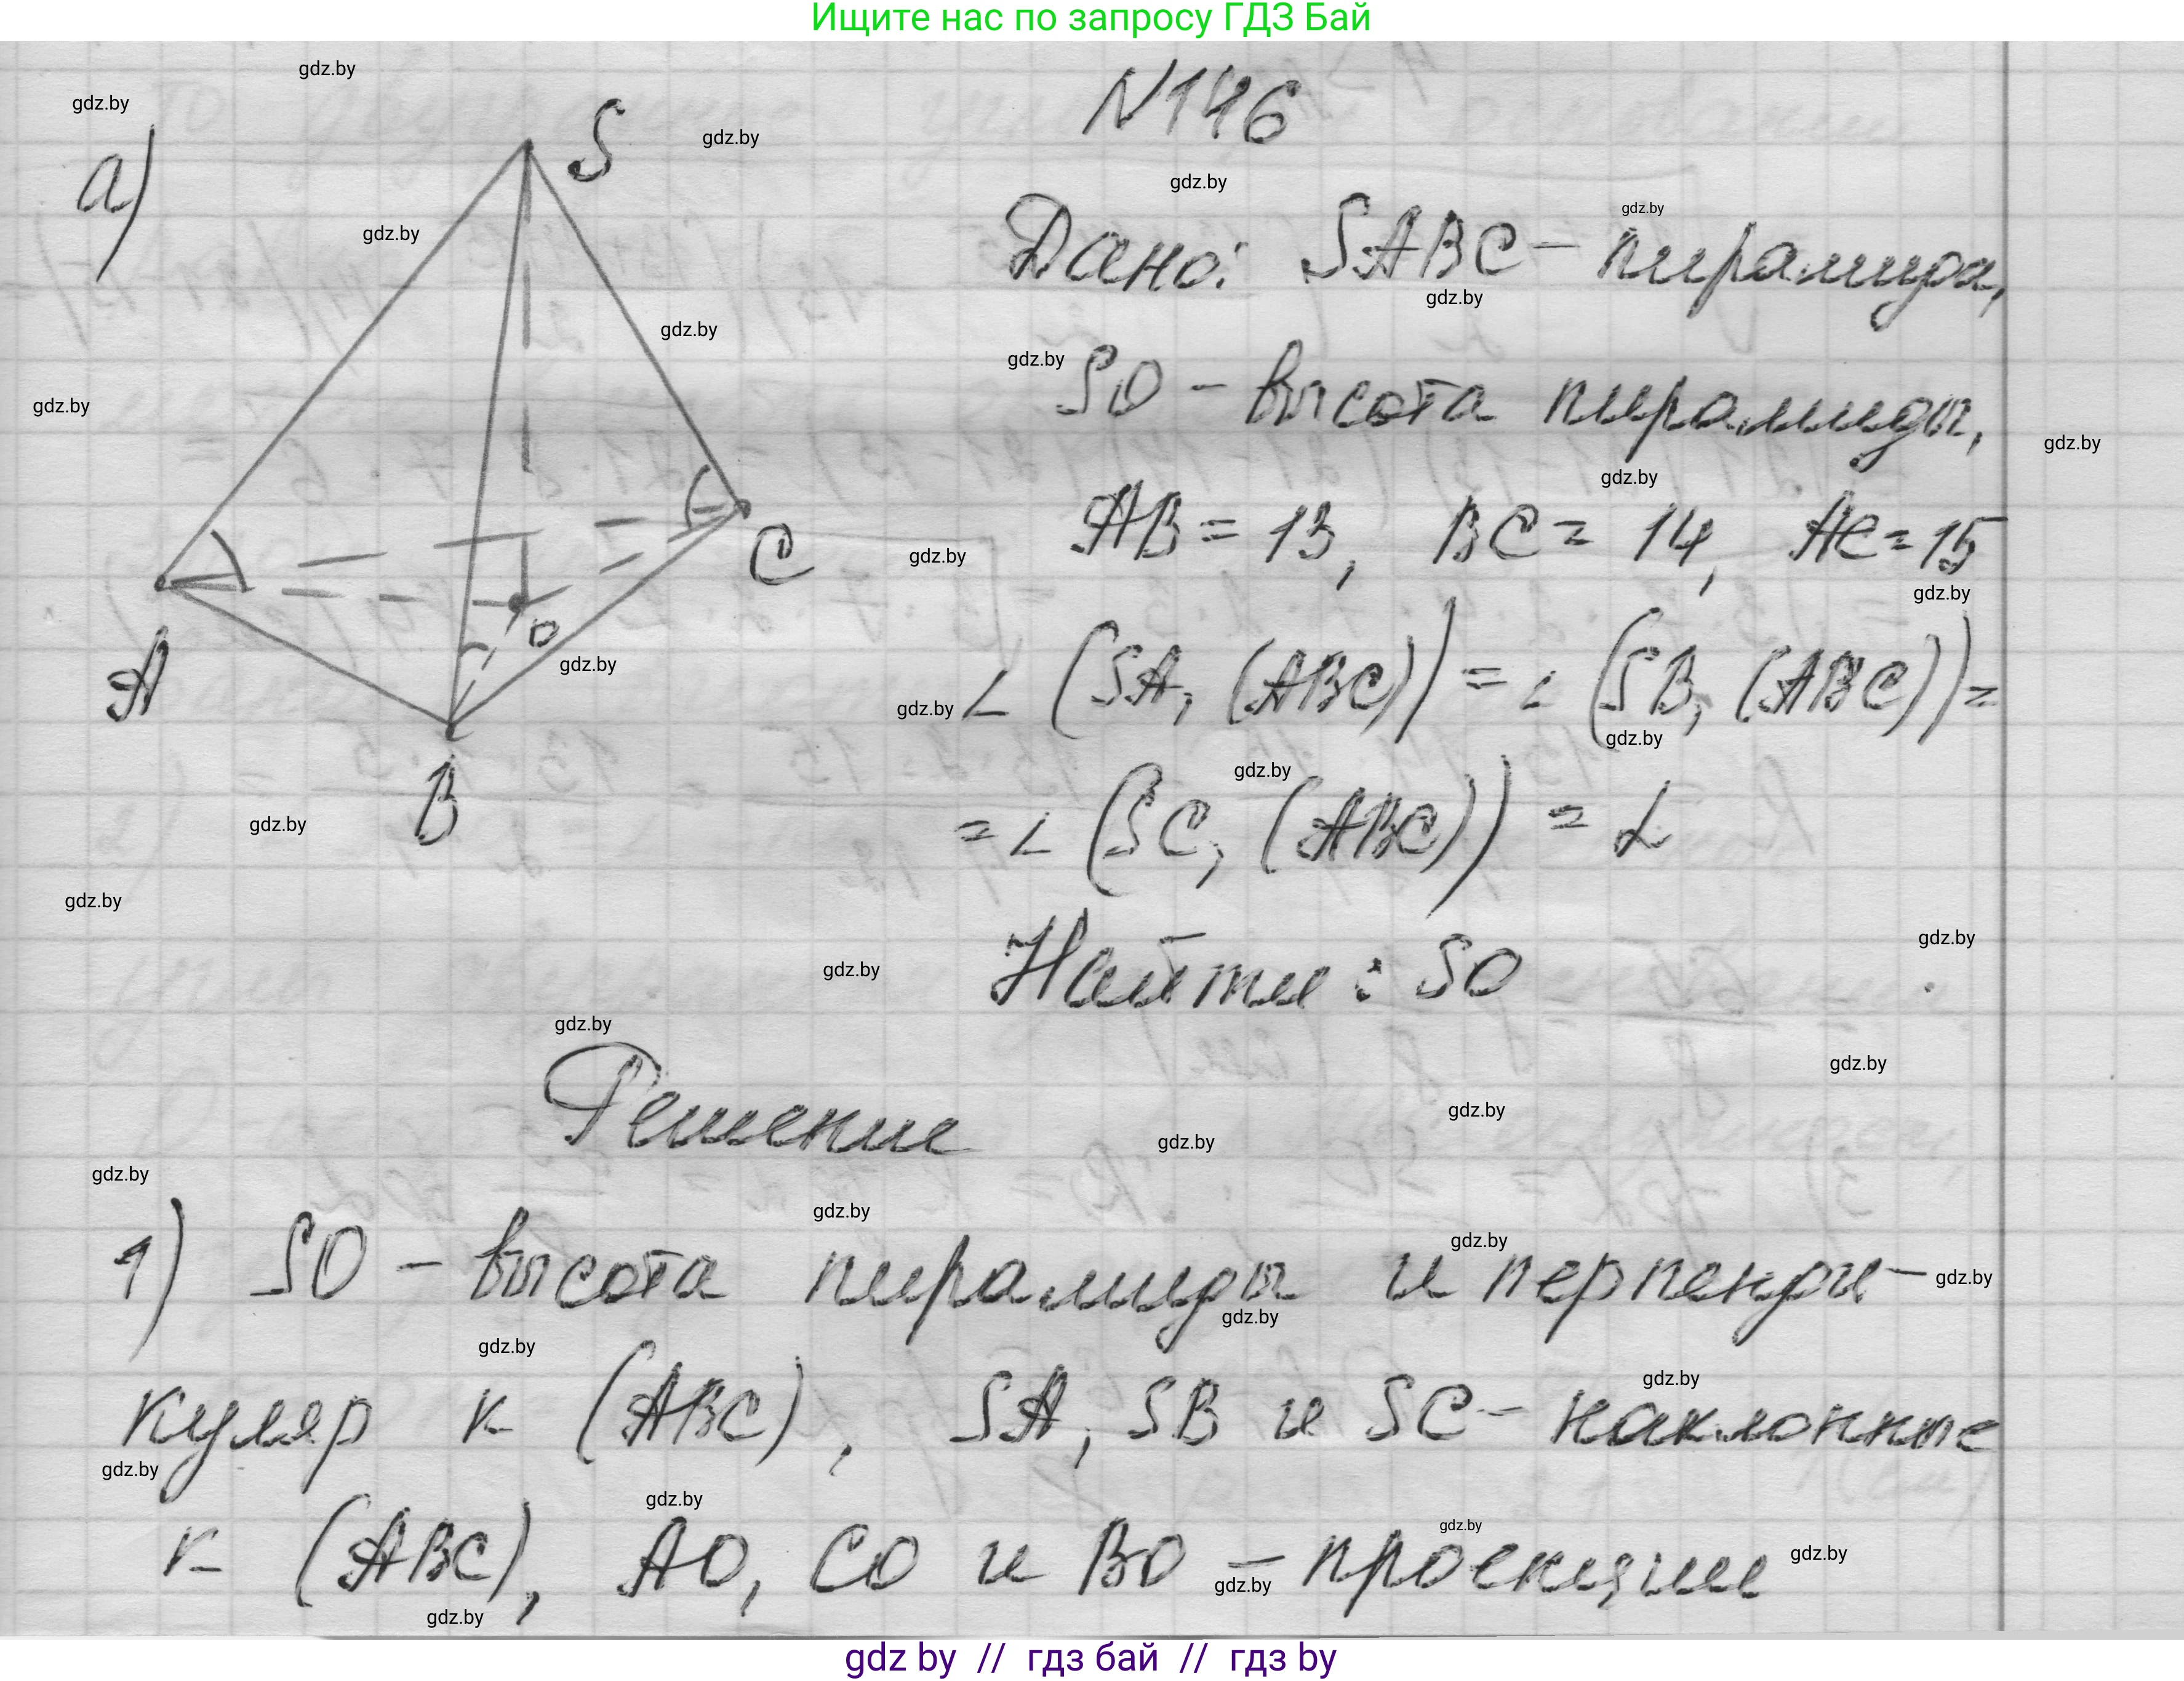 Ищите нас по запросу ГДЗ Бай
N146
а)
S
A
B
C
O
Дано: SABC – пирамида,
SO – высота пирамиды,
AB = 13, BC = 14, AC = 15
∠ (SA, (ABC)) = ∠ (SB, (ABC)) =
= ∠ (SC, (ABC)) = α
Найти: SO
Решение
1) SO – высота пирамиды и перпенди-
куляр к (ABC), SA, SB и SC – наклонные
к (ABC), AO, CO и BO – проекции
gdz by // гдз бай // гдз by